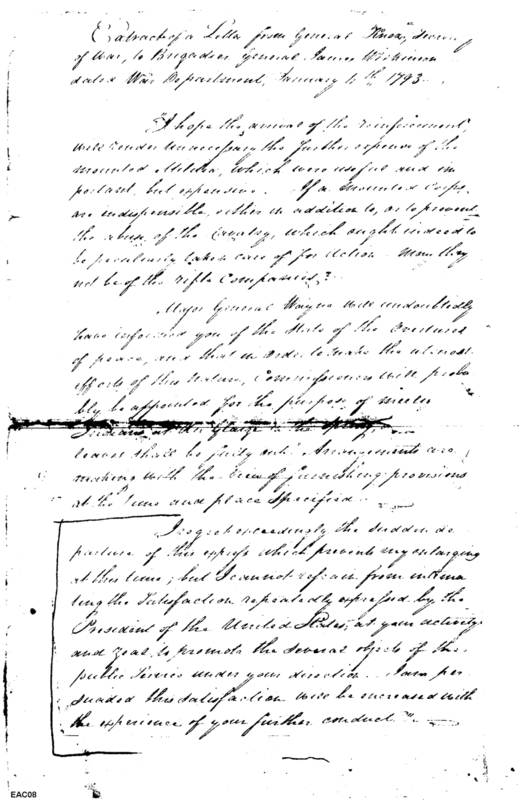 Extract of a Letter from General Knox, Secretary
of War, to Brigadier General James Wilkinson
dated War Department, January 4th 1793.
"I hope the arrival of the reinforcement,
will render unnecessary the further expense of the
mounted Militia, which were useful and im
portant, but expensive. If a mounted Corps
are indispensible, either in addition to, or to prevent
the abuse of the Cavalry, which ought indeed to
be peculiarly taken care of for Action. May they
not be of the rifle Companies?
Major General Wayne will undoubtedly
have informed you of the State of the Overtures
of peace, and that in order to make the utmost
efforts of this nature, Commissioners will proba
bly be appointed for the purpose of
Indians at Au Glaize in the Spring,
leaves shall be fully out. Arrangements are
making with the view of furnishing provisions
at the time and place specified.
I regret exceedingly the sudden de
parture of this express which prevents my enlarging
at this time; but I cannot refrain from intima
ting the Satisfaction repeatedly expressed by the
President of the United States, at your activity
and zeal to promote the several objects of the
public Service under your direction. I am per
suaded this satisfaction will be increased with
the experience of your further conduct."
EAC08